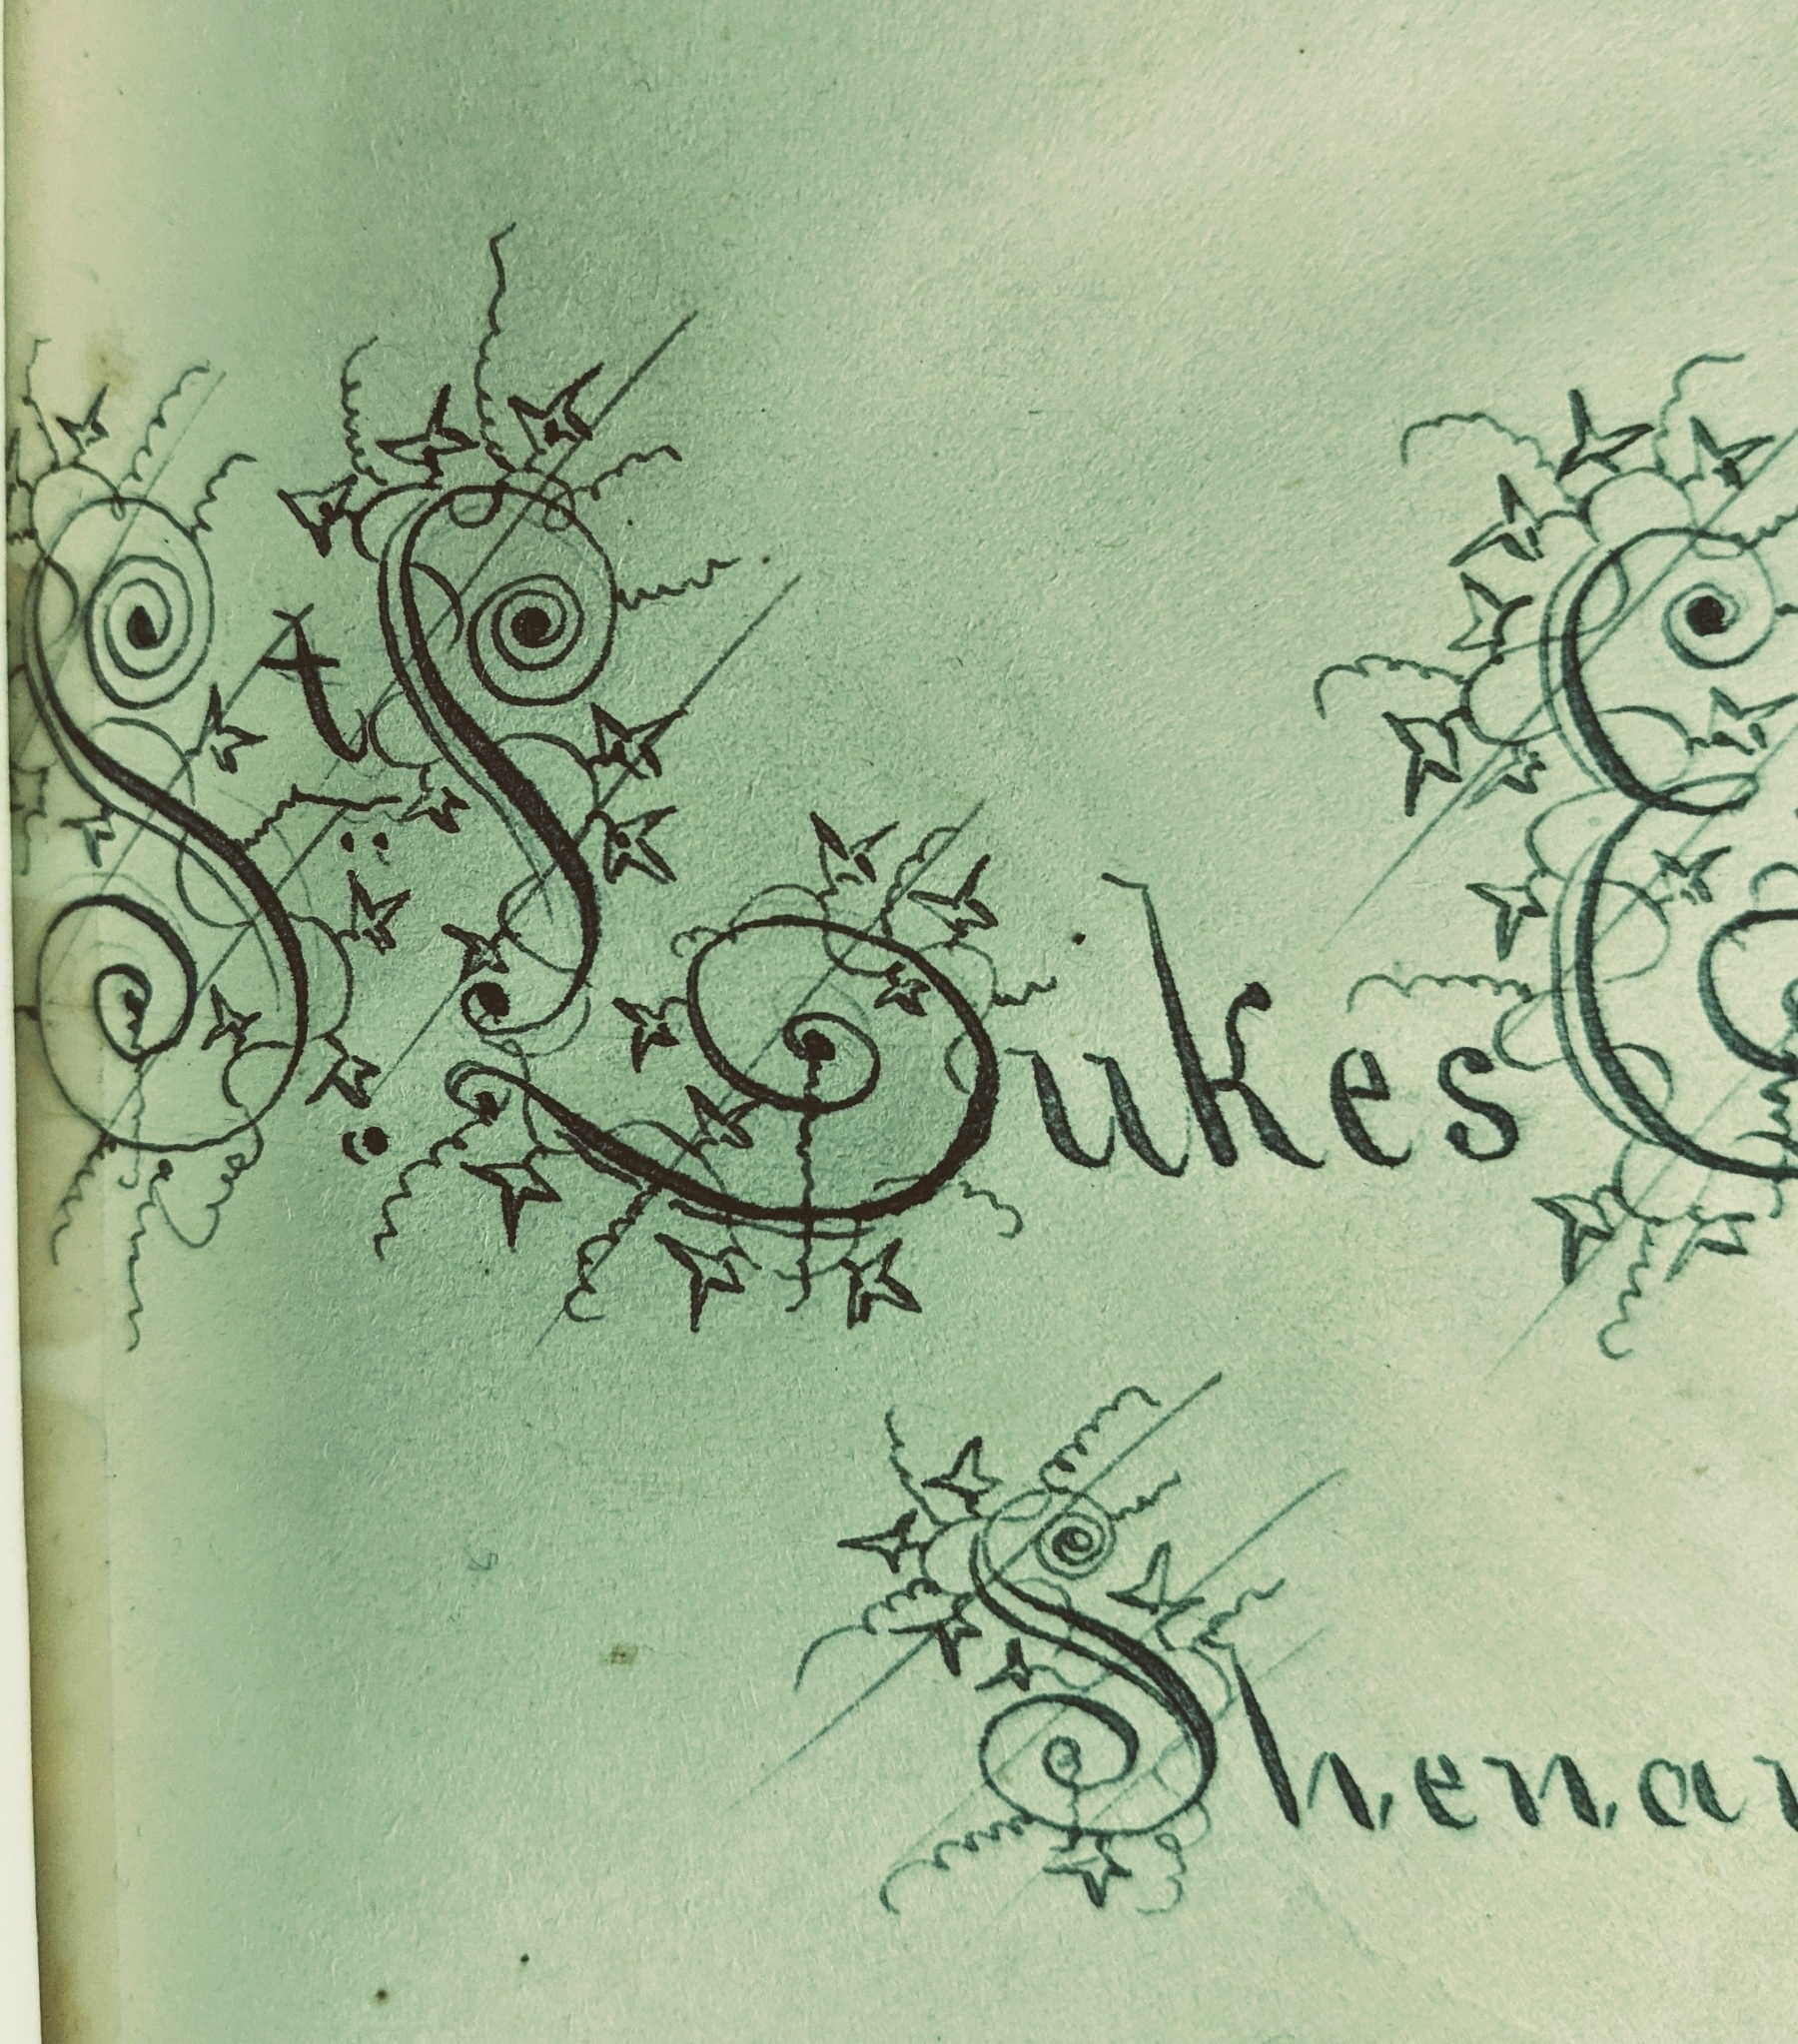 St Lukes C
Shenan